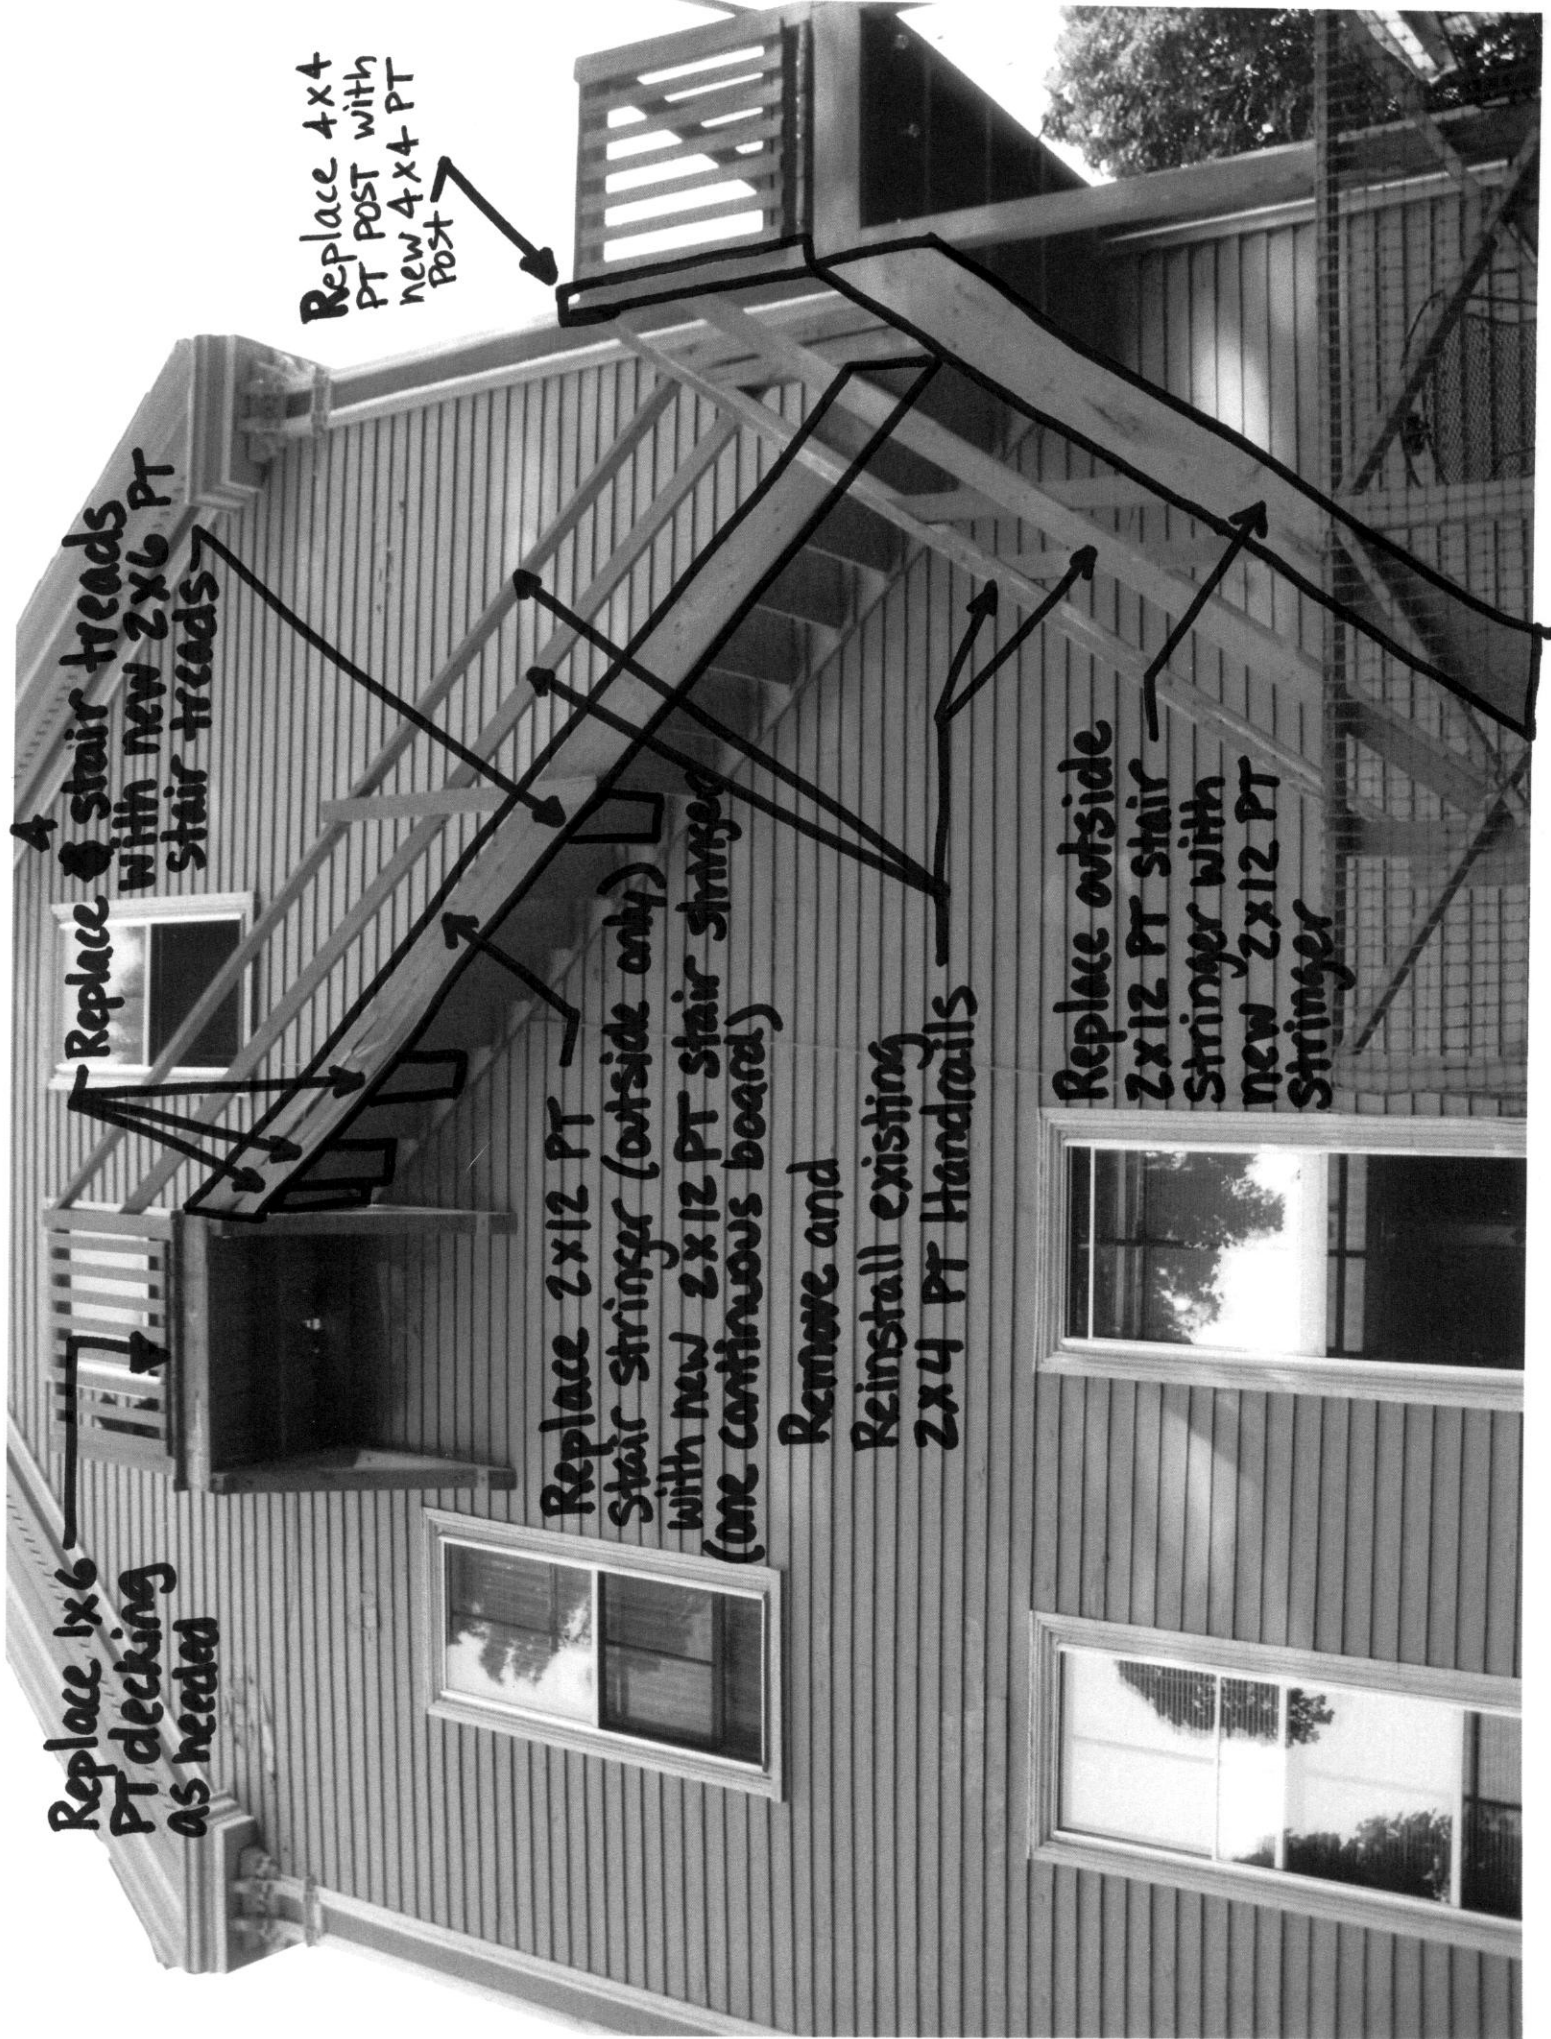 Replace 1x6
PT decking
as needed
Replace 4 stair treads
with new 2x6 PT
stair treads
Replace 4x4
PT POST with
new 4x4 PT
Post
Replace 2x12 PT
Stair Stringer (outside only)
with new 2x12 PT stair stringer
(one continuous board)
Remove and
Reinstall existing
2x4 PT Handrails
Replace outside
2x12 PT stair
Stringer with
new 2x12 PT
Stringer